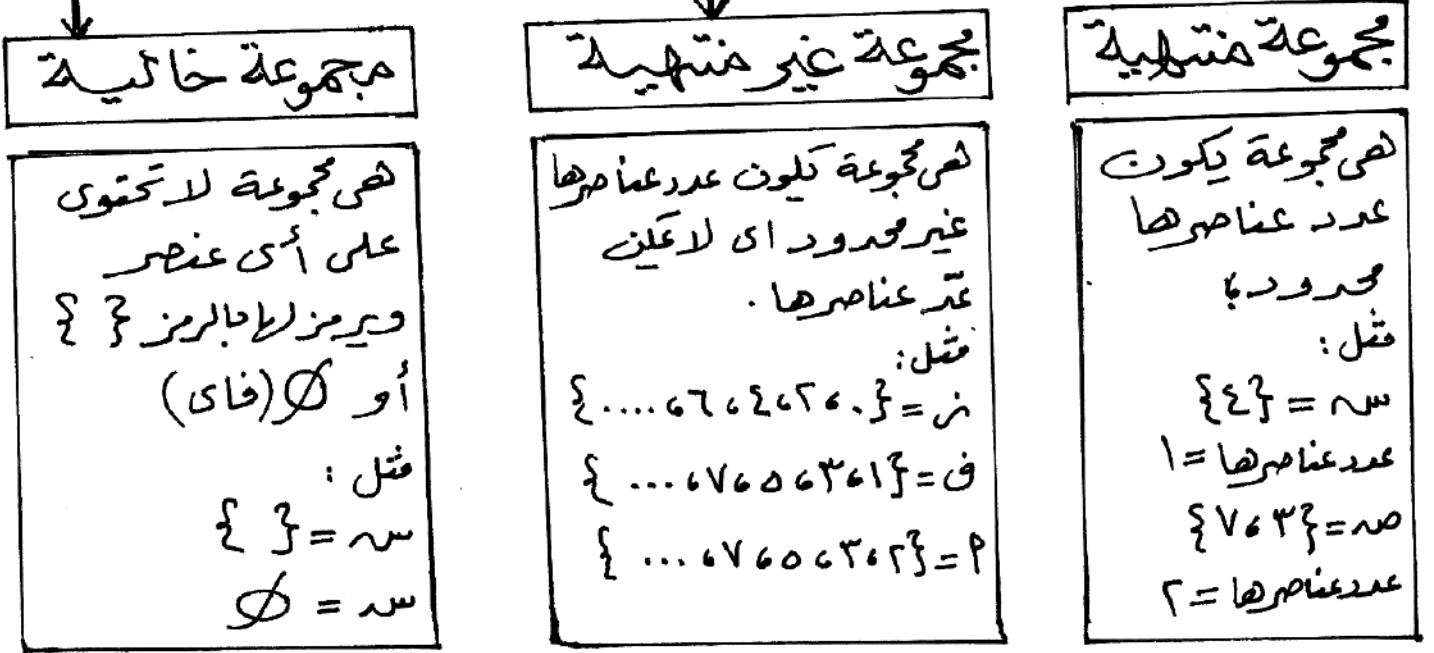 مجموعة منتهية
هى مجموعة يكون
عدد عناصرها
محدوداً
مثل :
س = {٤}
عدد عناصرها = ١
ص = {٣ ، ٧}
عدد عناصرها = ٢
مجموعة غير منتهية
هى مجموعة تكون عدد عناصرها
غير محدود اى لا يمكن
عدّ عناصرها .
مثل :
ز = {٠ ، ٢ ، ٤ ، ٦ ، ....}
ف = {١ ، ٣ ، ٥ ، ٧ ، ... }
م = {٢ ، ٣ ، ٥ ، ٧ ، ... }
مجموعة خالية
هى مجموعة لا تحتوى
على أى عنصر
ويرمز لها بالرمز { }
أو ∅ (فاى)
مثل :
س = { }
س = ∅